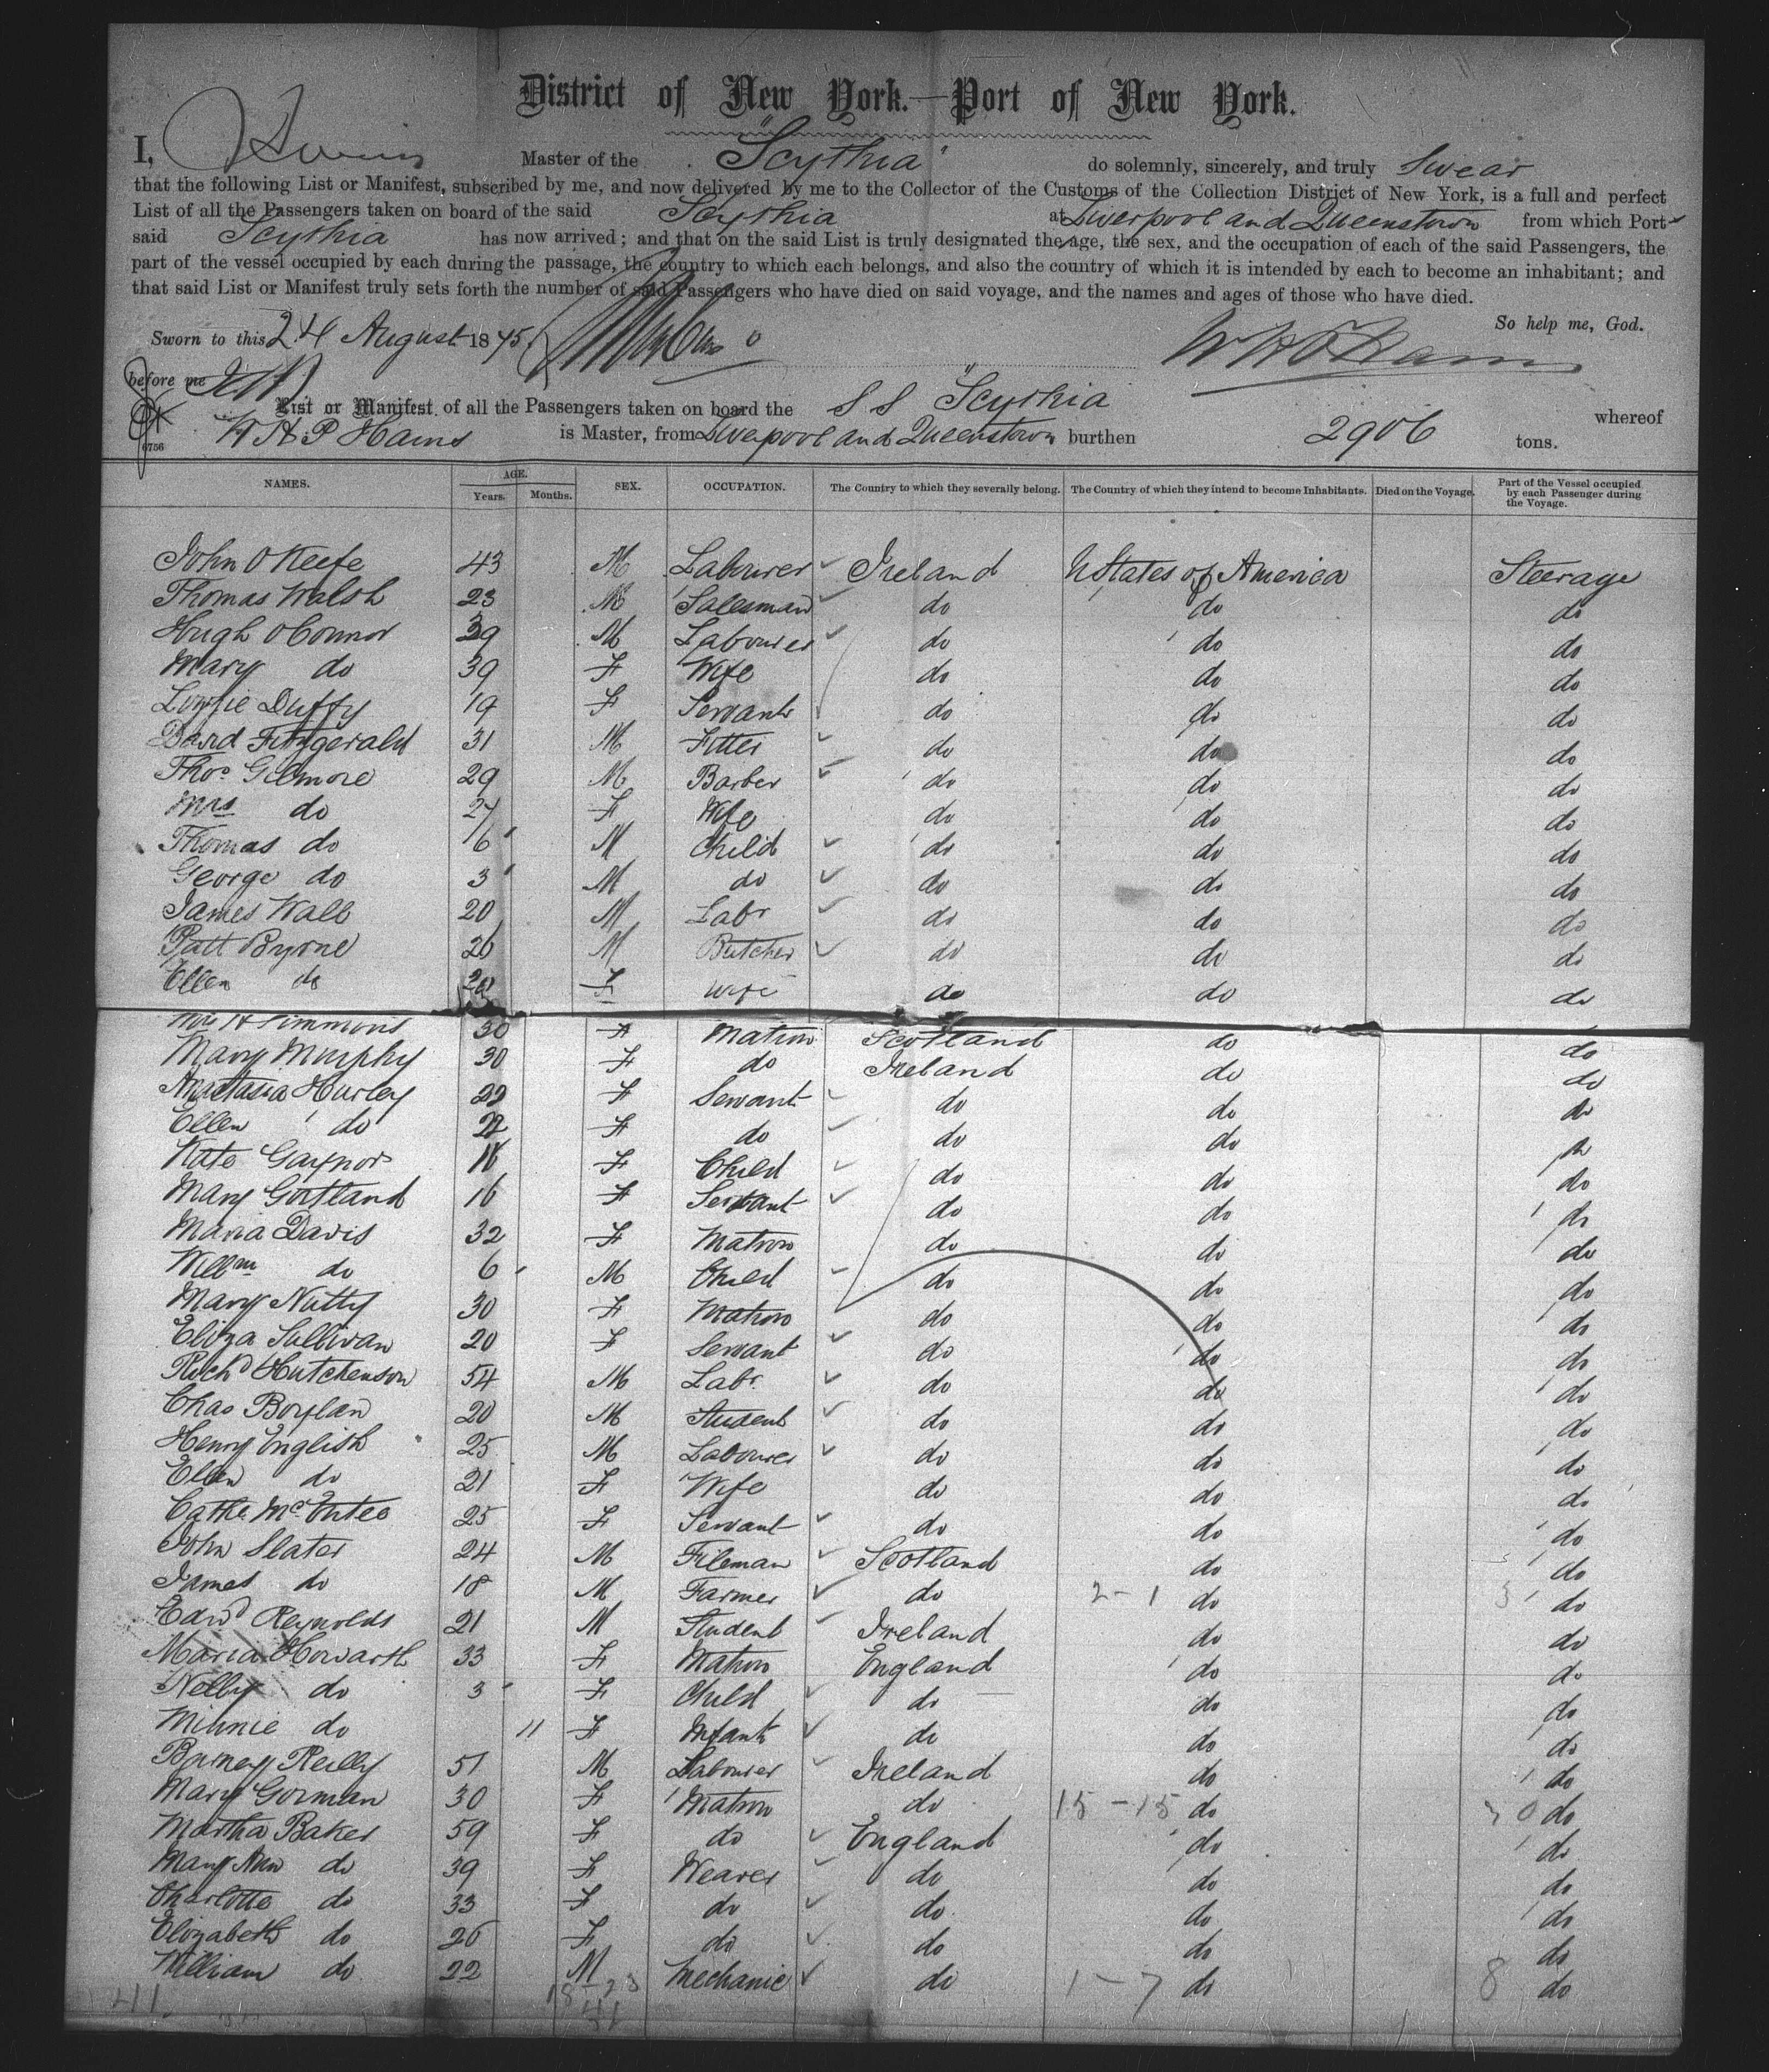 District of New York.—Port of New York.
I, Master of the "Scythia" do solemnly, sincerely, and truly Swear
that the following List or Manifest, subscribed by me, and now delivered by me to the Collector of the Customs of the Collection District of New York, is a full and perfect
List of all the Passengers taken on board of the said Scythia at Liverpool and Queenstown from which Port
said Scythia has now arrived; and that on the said List is truly designated the age, the sex, and the occupation of each of the said Passengers, the
part of the vessel occupied by each during the passage, the country to which each belongs, and also the country of which it is intended by each to become an inhabitant; and
that said List or Manifest truly sets forth the number of said Passengers who have died on said voyage, and the names and ages of those who have died.
So help me, God.
Sworn to this 24 August 1875
before me
List or Manifest of all the Passengers taken on board the SS "Scythia whereof
6756 W H P Hains is Master, from Liverpool and Queenstown burthen 2906 tons.
NAMES. AGE. Years. Months. SEX. OCCUPATION. The Country to which they severally belong. The Country of which they intend to become Inhabitants. Died on the Voyage. Part of the Vessel occupied by each Passenger during the Voyage.
John O Keefe 43 M Labourer Ireland U States of America Steerage
Thomas Walsh 23 M Salesman do do do
Hugh O Connor 39 M Labourer do do do
Mary do 39 F Wife do do do
Lizzie Duffy 19 F Servant do do do
David Fitzgerald 31 M Fitter do do do
Thos Gilmore 29 M Barber do do do
Mrs do 27 F Wife do do do
Thomas do 6 M Child do do do
George do 3 M do do do do
James Wall 20 M Labr do do do
Patt Byrne 26 M Butcher do do do
Ellen do F Wife do do do
Mrs H Simmons 30 F Matron Scotland do do
Mary Murphy 30 F do Ireland do do
Anastasia Hurley 22 F Servant do do do
Ellen do F do do do do
Kate Gaynor F Child do do do
Mary Gortland 16 F Servant do do do
Maria Davis 32 F Matron do do do
Willm do 6 M Child do do do
Mary Nutty 30 F Matron do do do
Eliza Sullivan 20 F Servant do do do
Richd Hutchenson 54 M Labr do do do
Chas Boylan 20 M Student do do do
Henry English 25 M Labourer do do do
Ellen do 21 F Wife do do do
Cathe McEntee 25 F Servant do do do
John Slater 24 M Fileman Scotland do do
James do 18 M Farmer do 2-1 do do
Edwd Reynolds 21 M Student Ireland do do
Maria Howarth 33 F Matron England do do
Nelly do 3 F Child do do do
Minnie do 11 F Infant do do do
Barney Reilly 51 M Labourer Ireland do do
Mary Gorman 30 F Matron do 15-15 do 30 do
Martha Baker 59 F do England do do
Mary Ann do 39 F Weaver do do do
Charlotte do 33 F do do do do
Elizabeth do 26 F do do do do
William do 22 M Mechanic do 1-7 do 8 do
41 18-23
41